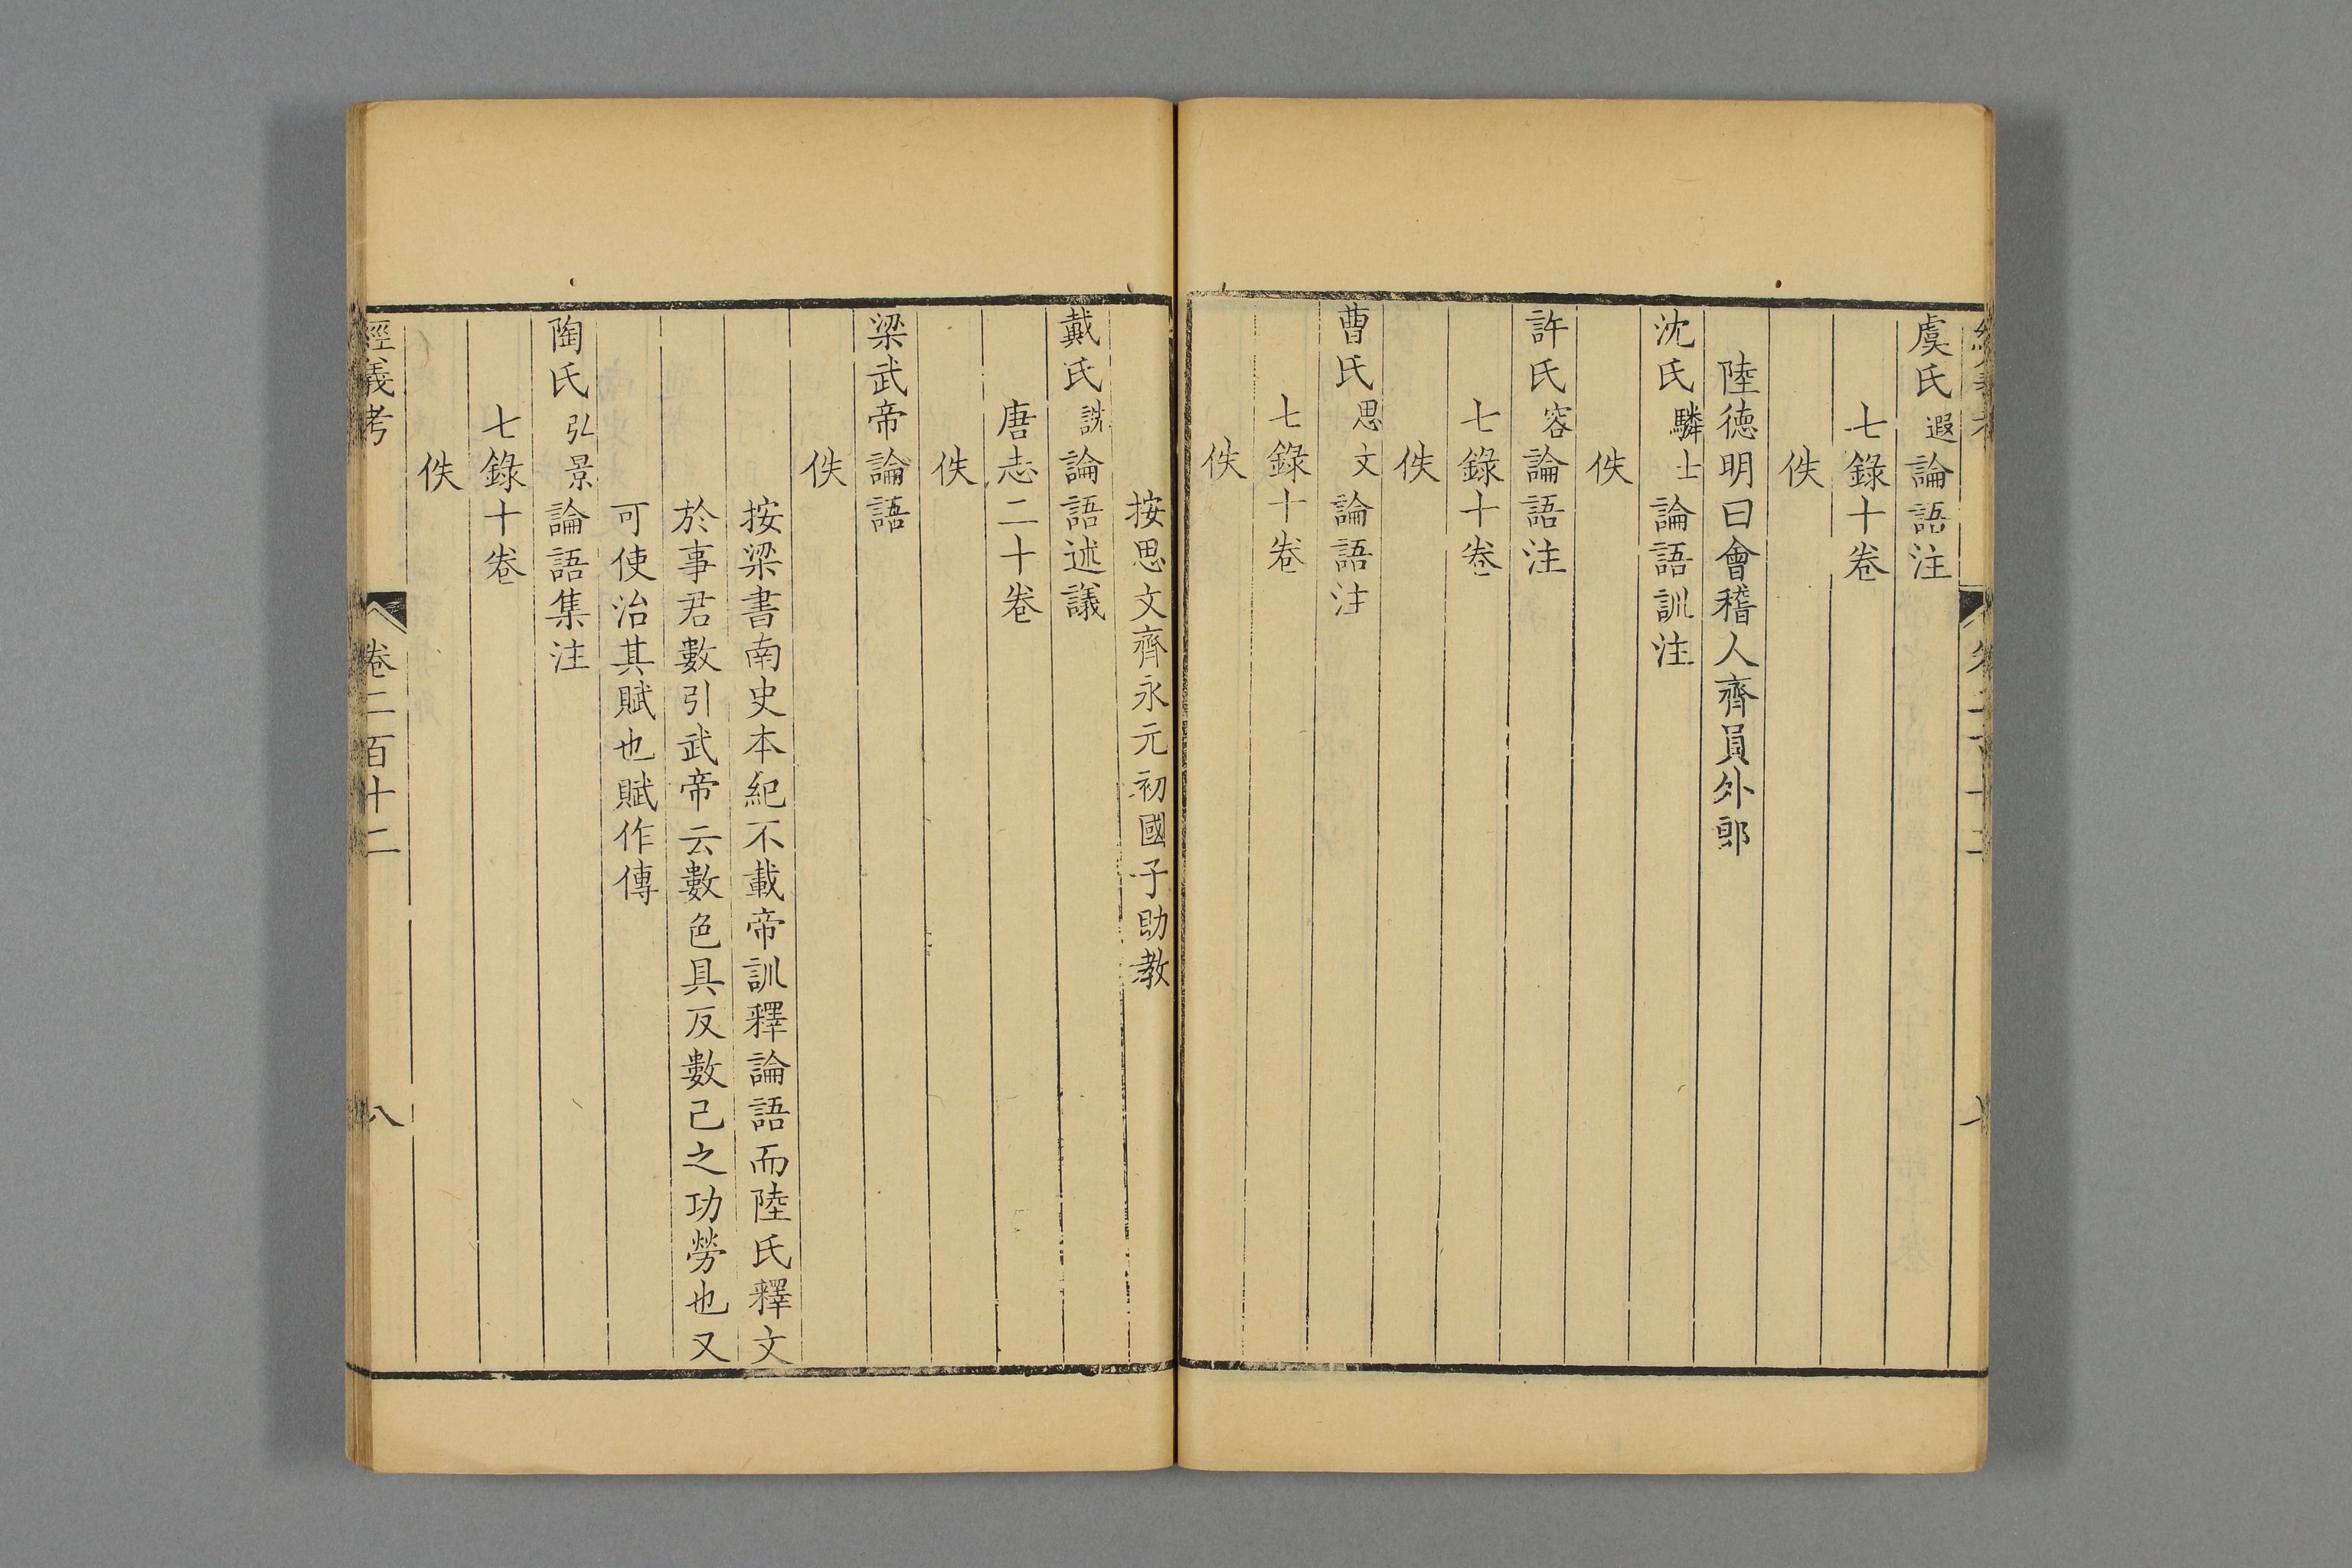 虞氏遐論語注
七錄十卷
佚
陸德明曰會稽人齊員外郎
沈氏驎士論語訓注
佚
許氏容論語注
七錄十卷
佚
曹氏思文論語注
七錄十卷
佚
按思文齊永元初國子助教
戴氏詵論語述議
唐志二十卷
佚
梁武帝論語
佚
按梁書南史本紀不載帝訓釋論語而陸氏釋文
於事君數引武帝云數色具反數己之功勞也又
可使治其賦也賦作傳
陶氏弘景論語集注
七錄十卷
佚
經義考
卷二百十二
八